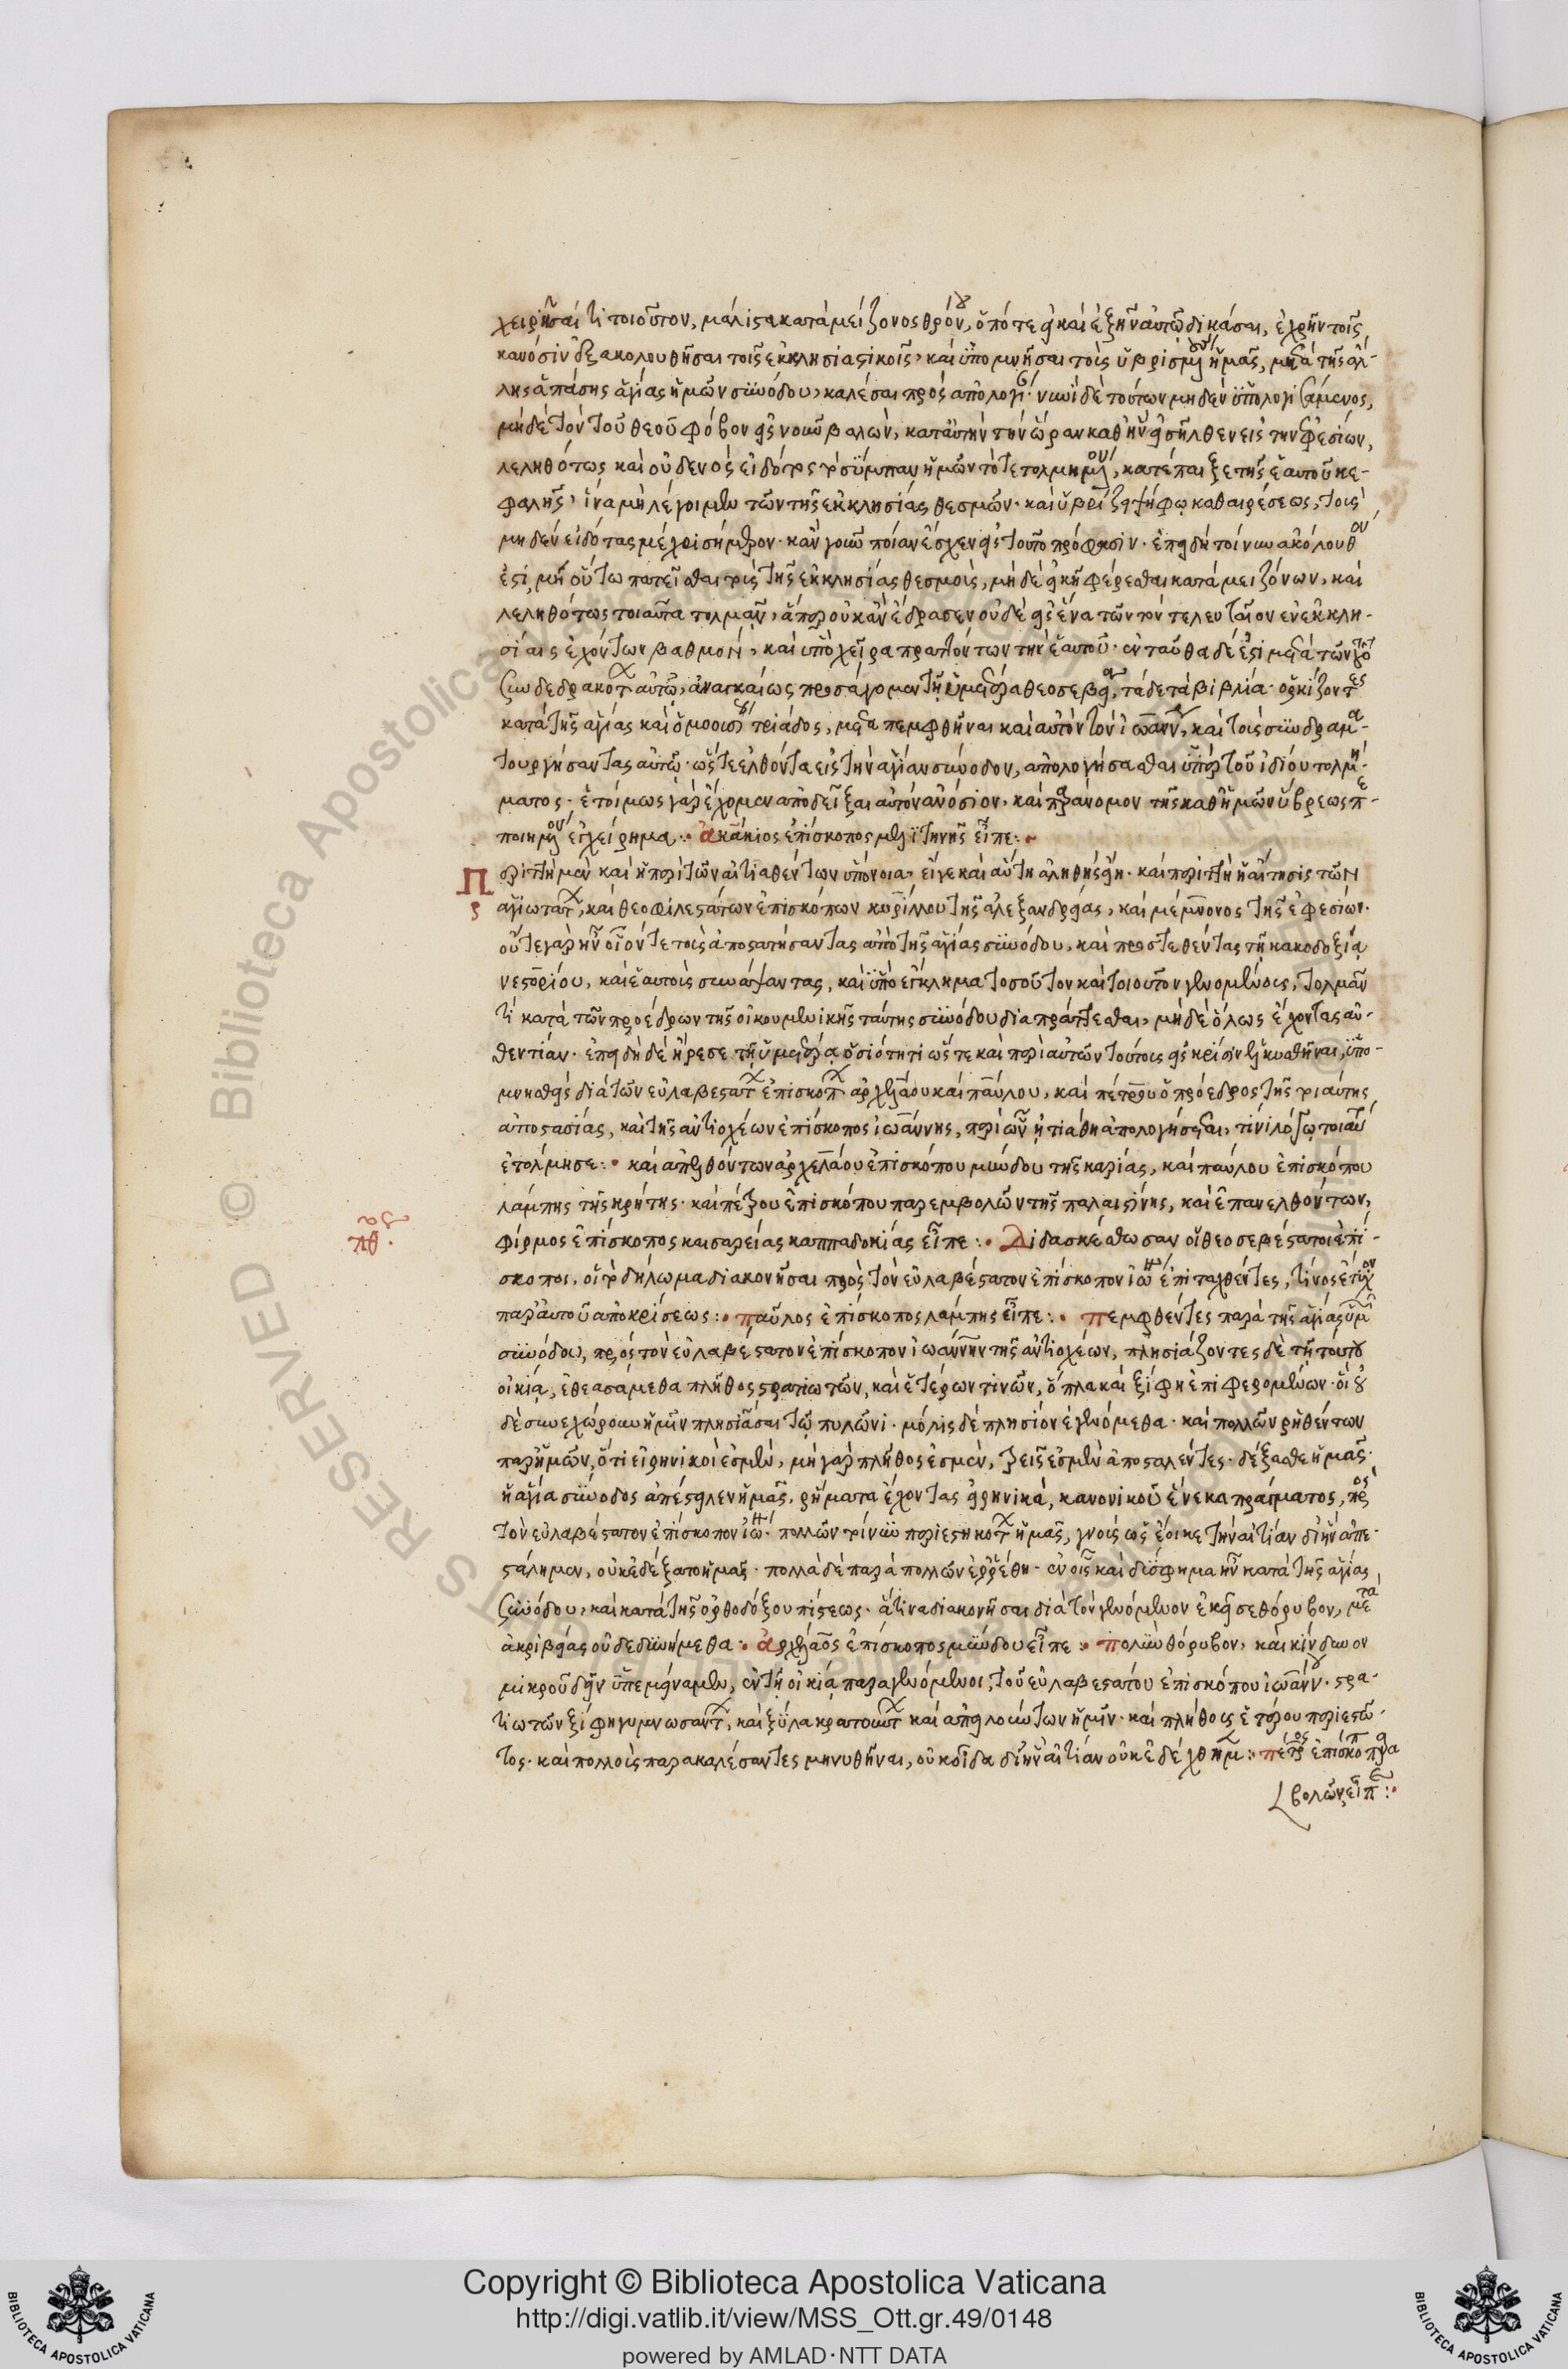 χειρῆσαί τι τοιοῦτον, μάλιστα κατὰ μείζονος θρόνου, ὁπότε εἰ καὶ ἐξῆν αὐτῶ δικάσαι, ἐχρῆν τοῖς
κανόσιν ἐξακολουθῆσαι τοῖς ἐκκλησιαστικοῖς, καὶ ὑπομνῆσαι τοὺς ὑβρισμένους ἡμᾶς, μετὰ τῆς ἀλ-
λης ἁπάσης ἁγίας ἡμῶν συνόδου, καλέσαι πρὸς ἀπολογίαν· νυνὶ δὲ τούτων μηδὲν ὑπολογισάμενος,
μηδὲ τὸν τοῦ θεοῦ φόβον εἰς νοῦν βαλὼν, κατ' αὐτὴν τὴν ὥραν καθ' ἣν εἰσῆλθεν εἰς τὴν ἐφεσίων,
λεληθότως καὶ οὐδενὸς εἰδότος τὸ σύμπαν ἡμῶν τότε τολμημένον, κατέπαιξε τῆς ἑαυτοῦ κε-
φαλῆς, ἵνα μὴ λέγοιμεν τῶν τῆς ἐκκλησίας θεσμῶν· καὶ ὑβρίζει ψήφω καθαιρέσεως, τοὺς
μηδὲν εἰδότας μέχρι σήμερον· κἂν γοῦν ποίαν ἔσχεν εἰς τοῦτο πρόφασιν· ἐπειδὴ τοίνυν ἀκόλουθον
ἐστὶ, μὴ οὕτω πατεῖσθαι τοὺς τῆς ἐκκλησίας θεσμοὺς, μηδὲ εἰκῆ φέρεσθαι κατὰ μειζόνων, καὶ
λεληθότως τοιαῦτα τολμᾶν, ἅπερ οὐκ ἂν ἔδρασεν οὐδὲ εἰς ἕνα τῶν τὸν τελευταῖον ἐν ἐκκλη-
σίαις ἐχόντων βαθμὸν, καὶ ὑπὸ χεῖρα πραττόντων τὴν ἑαυτοῦ· ἐνταῦθα δέ ἐστι μετὰ τῶν τότε
συνδεδρακότων αὐτῶ, ἀναγκαίως προσάγομεν τῆ ὑμετέρα θεοσεβεία, τάδε τὰ βιβλία· ὁρκίζοντες
κατὰ τῆς ἁγίας καὶ ὁμοουσίου τριάδος, μεταπεμφθῆναι καὶ αὐτὸν τὸν ἰωάννην, καὶ τοὺς συνδραμα-
τουργήσαντας αὐτῶ· ὥστε ἐλθόντα εἰς τὴν ἁγίαν σύνοδον, ἀπολογήσασθαι ὑπὲρ τοῦ ἰδίου τολμή-
ματος· ἑτοίμως γὰρ ἔχομεν ἀποδεῖξαι αὐτὸν ἀνόσιον, καὶ παράνομον τῆς καθ' ἡμῶν ὕβρεως πε-
ποιημένον ἐγχείρημα :· ἀκάκιος ἐπίσκοπος μελϊτηνῆς εἶπε :·
ς Περιττὴ μὲν καὶ ἡ περὶ τῶν αἰτιαθέντων ὑπόνοια, εἴγε καὶ αὕτη ἀληθὴς εἴη· καὶ περιττὴ ἡ αἴτησις τῶν
ἁγιωτάτων, καὶ θεοφιλεστάτων ἐπισκόπων κυρίλλου τῆς ἀλεξανδρείας, καὶ μέμνονος τῆς ἐφεσίων·
οὔτε γὰρ ἦν οἷόν τε τοὺς ἀποστατήσαντας ἀπὸ τῆς ἁγίας συνόδου, καὶ προστεθέντας τῆ κακοδοξία
νεστορίου, καὶ ἑαυτοὺς συνάψαντας, καὶ ὑπὸ ἔγκλημα τοσοῦτον καὶ τοιοῦτον γενομένους, τολμᾶν
τὶ κατὰ τῶν προέδρων τῆς οἰκουμενικῆς ταύτης συνόδου διαπράττεσθαι, μηδὲ ὅλως ἔχοντας αὐ-
θεντίαν· ἐπειδὴ δὲ ἤρεσε τῆ ὑμετέρα ὁσιότητι ὥστε καὶ περὶ αὐτῶν τούτους εἰς κρίσιν ἑλκυσθῆναι, ὑπο-
μνησθεὶς διὰ τῶν εὐλαβεστάτων ἐπισκόπων ἀρχελάου καὶ παύλου, καὶ πέτρου ὁ πρόεδρος τῆς τοιαύτης
ἀποστασίας, καὶ τῆς ἀντιοχέων ἐπίσκοπος ἰωάννης, περὶ ὧν ἠτιάθη ἀπολογήσεται, τίνι λόγω τοιαῦτα
ἐτόλμησε :· καὶ ἀπελθόντων ἀρχελάου ἐπισκόπου μύνδου τῆς καρίας, καὶ παύλου ἐπισκόπου
λάμπης τῆς κρήτης· καὶ πέτρου ἐπισκόπου παρεμβολῶν τῆς παλαιστίνης, καὶ ἐπανελθόντων,
φίρμος ἐπίσκοπος καισαρείας καππαδοκίας εἶπε :· Διδασκέσθωσαν οἱ θεοσεβέστατοι ἐπί-
σκοποι, οἱ τὸ δήλωμα διακονῆσαι πρὸς τὸν εὐλαβέστατον ἐπίσκοπον ἰωάννην ἐπιταχθέντες, τίνος ἔτυχον
παρ' αὐτοῦ ἀποκρίσεως :· παῦλος ἐπίσκοπος λάμπης εἶπε :· πεμφθέντες παρὰ τῆς ἁγίας ὑμῶν
συνόδου, πρὸς τὸν εὐλαβέστατον ἐπίσκοπον ἰωάννην τῆς ἀντιοχέων, πλησιάζοντες δὲ τῆ τούτου
οἰκία, ἐθεασάμεθα πλῆθος στρατιωτῶν, καὶ ἑτέρων τινῶν, ὅπλα καὶ ξίφη ἐπιφερομένων· οἳ οὐ
δὲ συνεχώρουν ἡμῖν πλησιάσαι τῶ πυλῶνι· μόλις δὲ πλησίον ἐγενόμεθα· καὶ πολλῶν ῥηθέντων
παρ' ἡμῶν, ὅτι εἰρηνικοὶ ἐσμὲν, μὴ γὰρ πλῆθος ἐσμὲν, τρεῖς ἐσμὲν ἀποσταλέντες· δέξασθε ἡμᾶς·
ἡ ἁγία σύνοδος ἀπέστειλεν ἡμᾶς, ῥήματα ἔχοντας εἰρηνικὰ, κανονικοῦ ἕνεκα πράγματος, πρὸς
τὸν εὐλαβέστατον ἐπίσκοπον ἰωάννην· πολλῶν τοίνυν περιεστηκότων ἡμᾶς, γνοὺς ὡς ἔοικε τὴν αἰτίαν δι' ἣν ἀπε-
στάλημεν, οὐκ ἐδέξατο ἡμᾶς· πολλὰ δὲ παρὰ πολλῶν ἐρρέθη· ἐν οἷς καὶ δύσφημα ἦν κατὰ τῆς ἁγίας
συνόδου, καὶ κατὰ τῆς ὀρθοδόξου πίστεως· ἅτινα διακονῆσαι διὰ τὸν γενόμενον ἐκεῖσε θόρυβον, μετὰ
ἀκριβείας οὐ δεδυνήμεθα :· ἀρχέλαος ἐπίσκοπος μύνδου εἶπε :· πολὺν θόρυβον, καὶ κίνδυνον
μικροῦ δεῖν ὑπεμείναμεν, ἐν τῆ οἰκία παραγενόμενοι, τοῦ εὐλαβεστάτου ἐπισκόπου ἰωάννου· στρα-
τιωτῶν ξίφη γυμνωσάντων, καὶ ξύλα κρατούντων καὶ ἀπειλούντων ἡμῖν· καὶ πλήθους ἑτέρου περιεστῶ-
τος· καὶ πολλοὺς παρακαλέσαντες μηνυθῆναι, οὐκ οἶδα δι' ἣν αἰτίαν οὐκ ἐδέχθημεν :· πέτρος ἐπίσκοπος παρεμ
βολῶν εἶπε :·
Copyright © Biblioteca Apostolica Vaticana
http://digi.vatlib.it/view/MSS_Ott.gr.49/0148
powered by AMLAD·NTT DATA